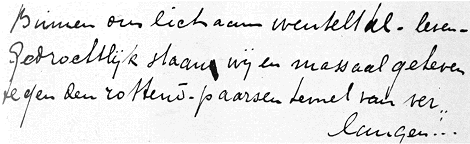 Binnen ons lichaam wentelt al-leven-
Gedrochtlijk staan wij en massaal geheven
tegen den rottend-paarsen hemel van ver-
langen...